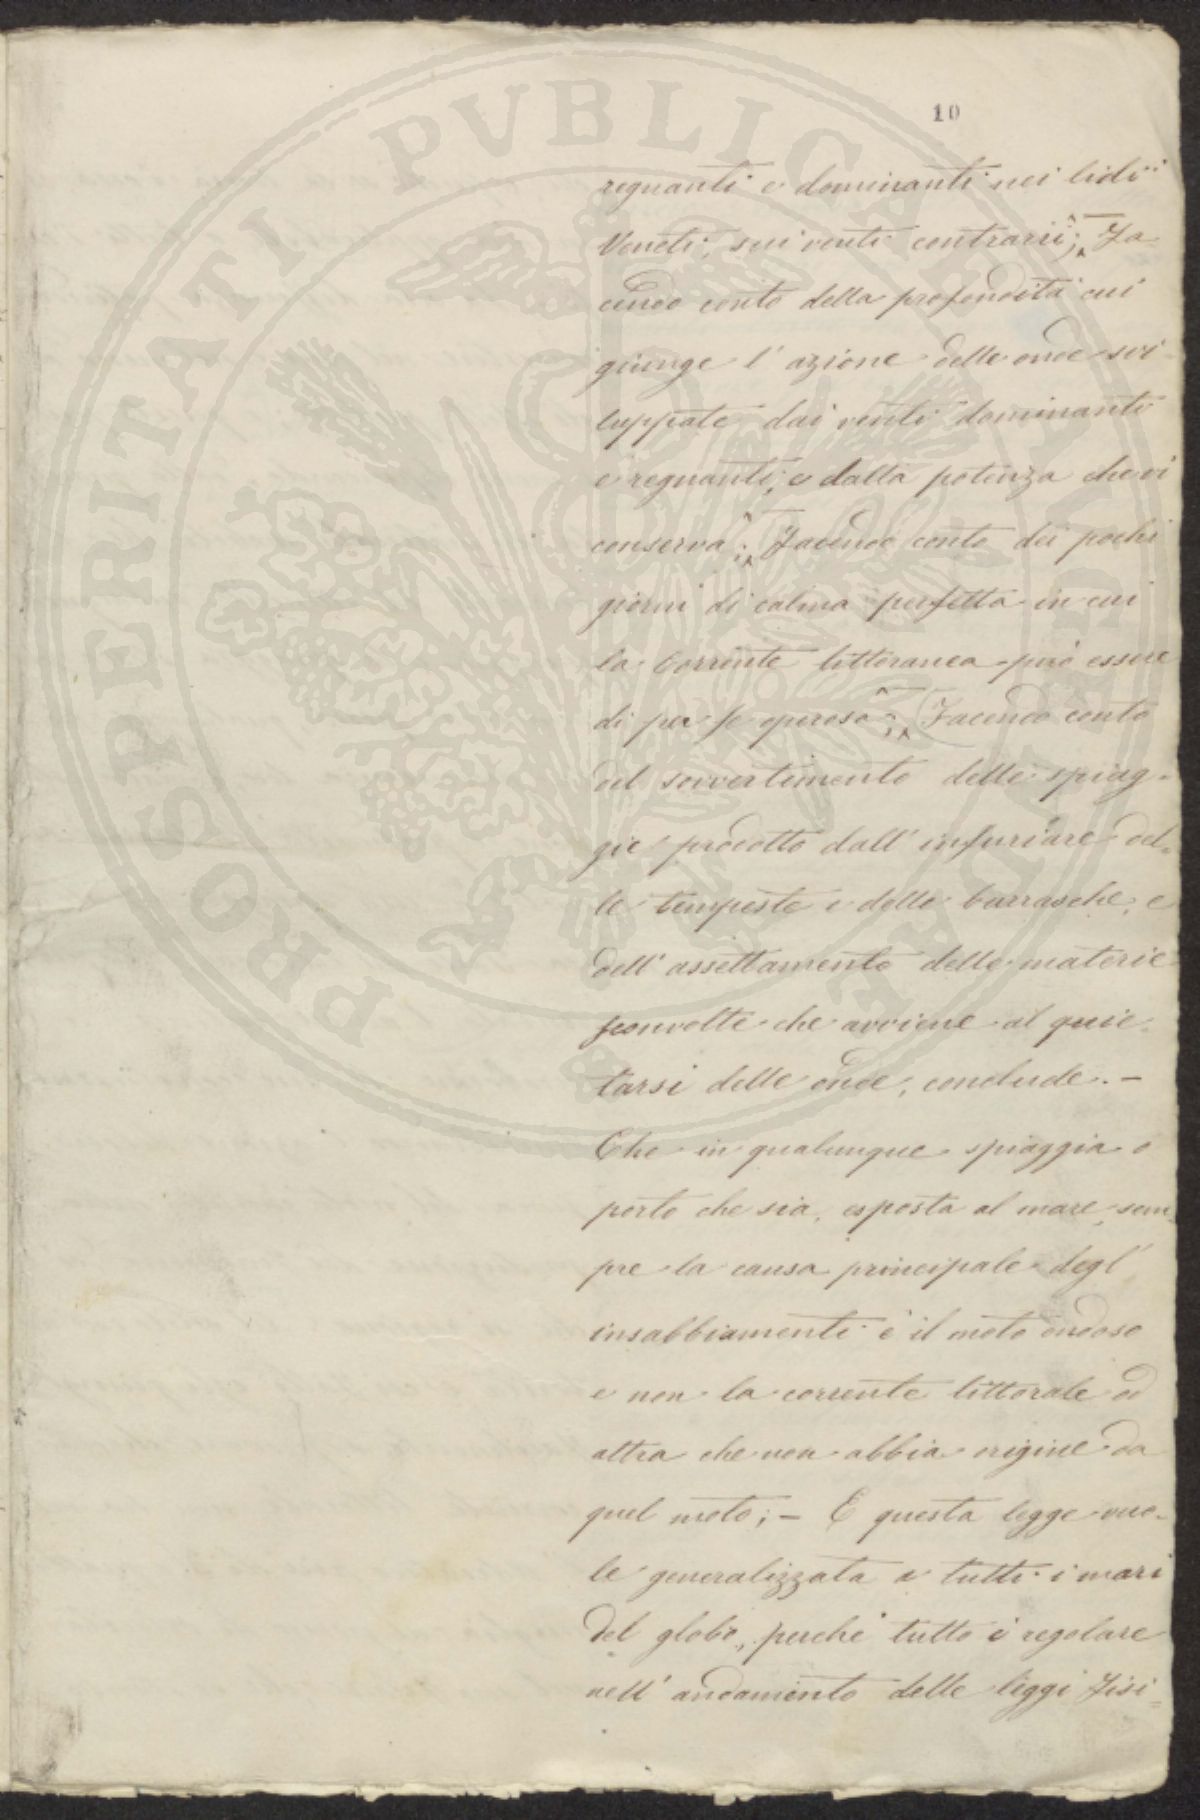 PROSPERITATI PVBLICAE AVGENDAE
10
regnanti e dominanti nei lidii
Veneti, sui venti contrarii; Fa-
cendo conto della profondità cui
giunge l'azione delle onde svi-
luppate dai venti dominanti
e regnanti, e dalla potenza che vi
conserva; Facendo conto dei pochi
giorni di calma perfetta in cui
la corrente littoranea può essere
di per se operosa; Facendo conto
del sovvertimento delle spiag-
gie prodotto dall'infuriare del-
le tempeste e delle burrasche, e
dell'assettamento delle materie
sconvolte che avviene al quie-
tarsi delle onde, conclude. -
Che in qualunque spiaggia o
porto che sia, esposta al mare, sem-
pre la causa principale degl'
insabbiamenti è il moto ondoso
e non la corrente littorale od
altra che non abbia origine da
quel moto; - E questa legge vuo-
le generalizzata a tutti i mari
del globo, perché tutto è regolare
nell'andamento delle leggi Fisi-